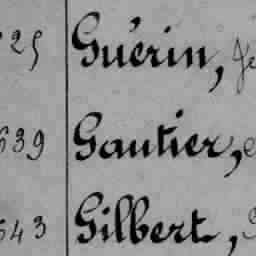 25 Guérin,
639 Gautier,
643 Gilbert,